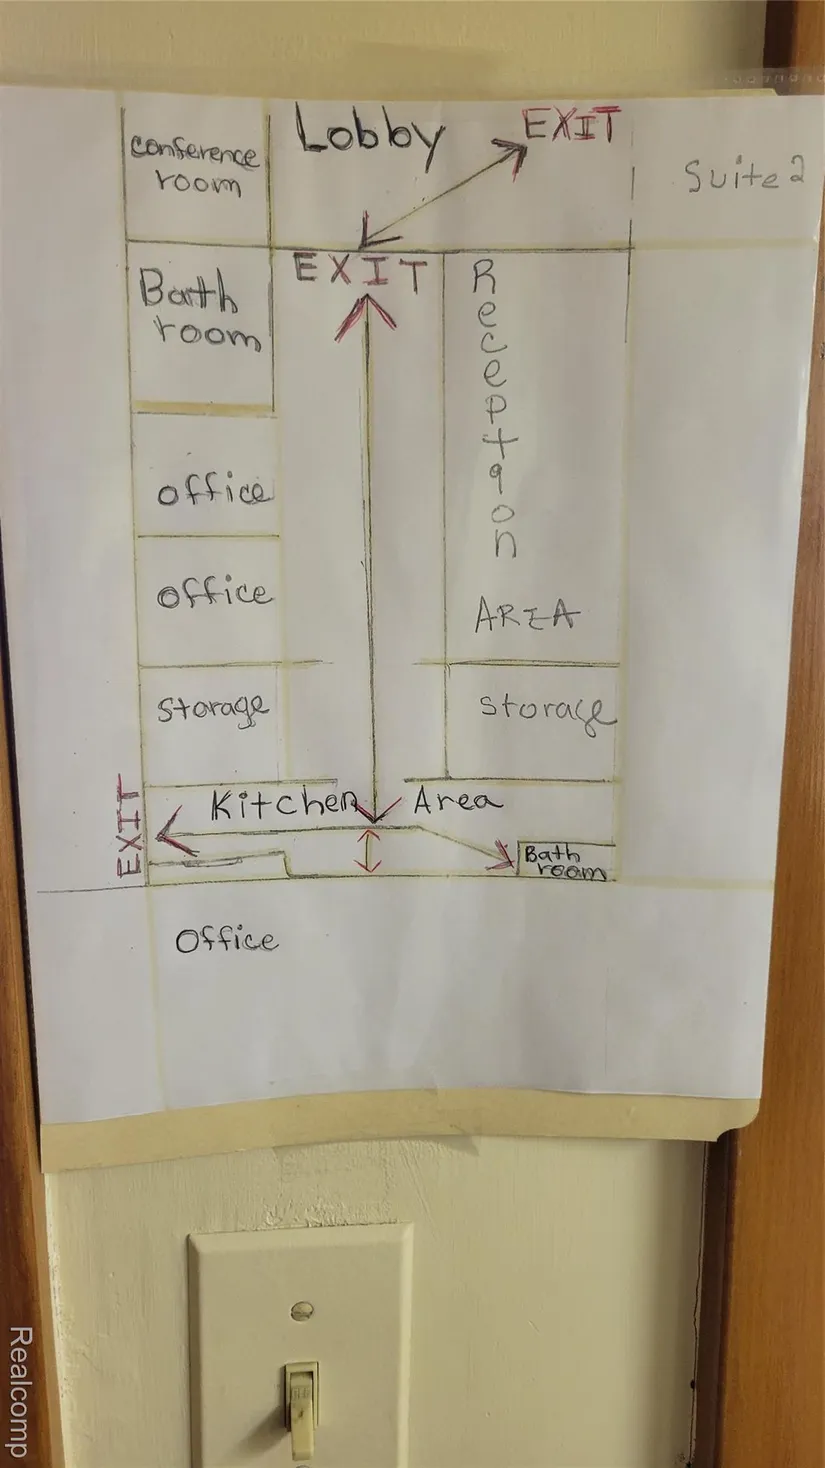 conference
room
Lobby
EXIT
Suite 2
Bath
room
EXIT
Reception
AREA
office
office
Storage
Storage
EXIT
Kitchen Area
Bath
room
Office
Realcomp